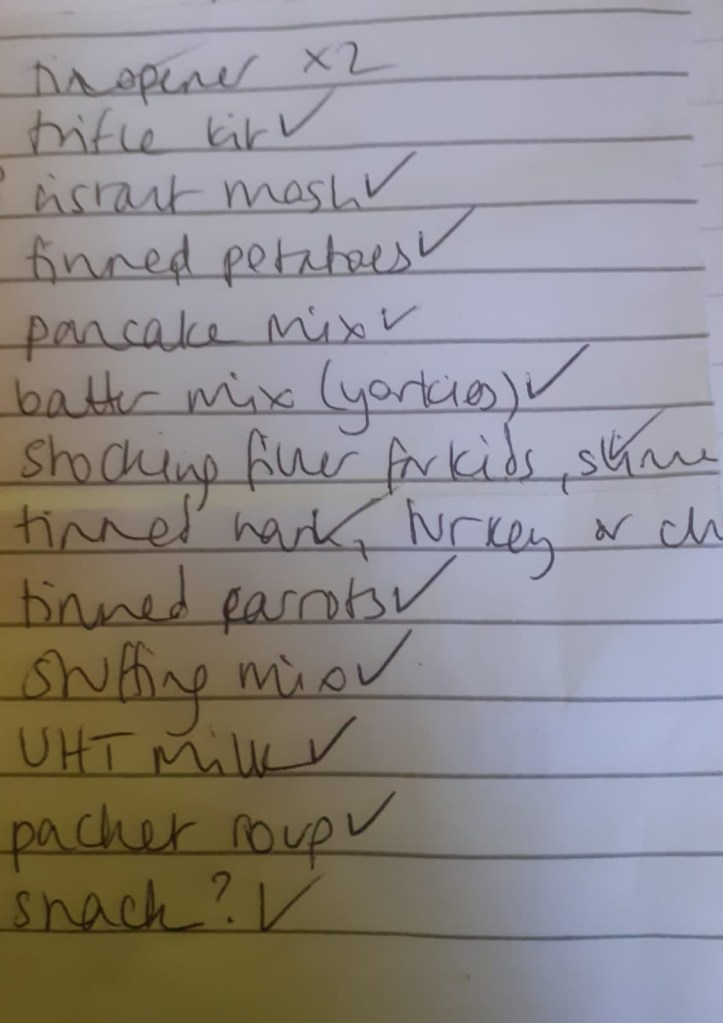 tin opener x2
trifle kit ✓
instant mash ✓
tinned potatoes ✓
pancake mix ✓
batter mix (yorkies) ✓
stocking filler for kids, slime
tinned ham ✓, turkey or ch
tinned carrots ✓
stuffing mix ✓
UHT milk ✓
packet soup ✓
snack? ✓